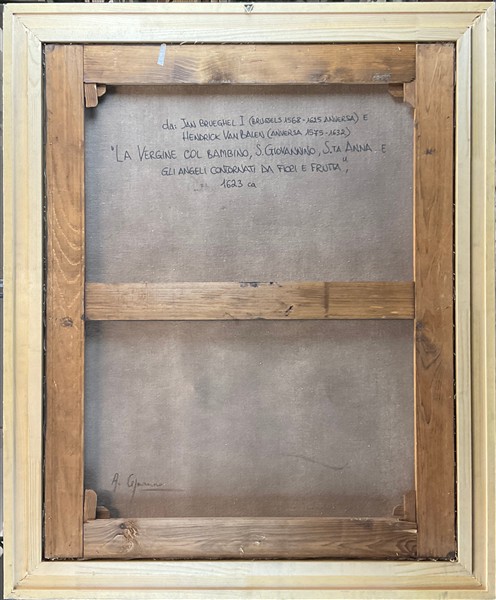 da: JAN BRUEGHEL I (BRUXELS 1568-1625 ANVERSA) E
HENDRICK VAN BALEN (ANVERSA 1575-1632)
"LA VERGINE COL BAMBINO, S. GIOVANNINO, S.TA ANNA E
GLI ANGELI CONTORNATI DA FIORI E FRUTTA",
1623 ca
A.